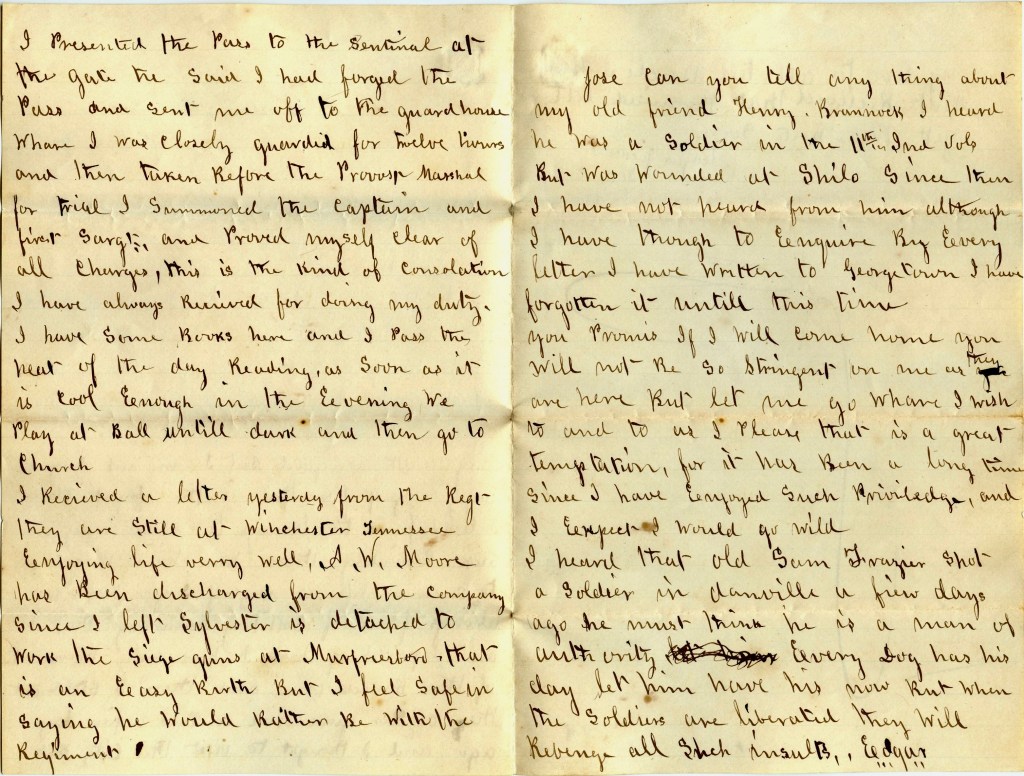 I Presented the Pass to the Sentinal at
the Gate He Said I had forged the
Pass and sent me off to the guardhouse
Whare I was closely guarded for twelve hours
and then taken Before the Provost Marshal
for trial I Summoned the Captain and
first Sargt, and Proved myself clear of
all Charges, this is the kind of consolation
I have always Recieved for doing my duty.
I have Some Books here and I Pass the
heat of the day Reading, as Soon as it
is Cool Eenough in the Eevening We
Play at Ball untill dark and then go to
Church
I Recieved a letter yesterday from the Regt
they are Still at Winchester Tennessee
Eenjoying life verry well, A. W. Moore
has Been discharged from the company
Since I left Sylvester is detached to
Work the Siege guns at Murfriersboro. that
is an Eeasy Birth But I feel Safe in
Saying he Would Rather Be With the
Regiment
Jose Can you tell any thing about
my old friend Henry. Brannock I heard
he was a Soldier in the 11th Ind Vols
But was Wounded at Shilo Since then
I have not heard from him although
I have though to Eenquire By Eevery
letter I have Written to Georgetown I have
forgotten it untill this time
you Promis If I will Come home you
Will not Be So Stringent on me as they
are here But let me go Whare I wish
to and to as I Please that is a great
temptation, for it has Been a long time
Since I have Eenjoyed Such Priviledge, and
I Eexpect I would go wild
I heard that old Sam Frazier Shot
a Soldier in danville a fiew days
ago he must think he is a man of
authority Eevery Dog has his
day let him have his now But When
the Soldiers are liberated they Will
Revenge all Such insults,, Eedgar